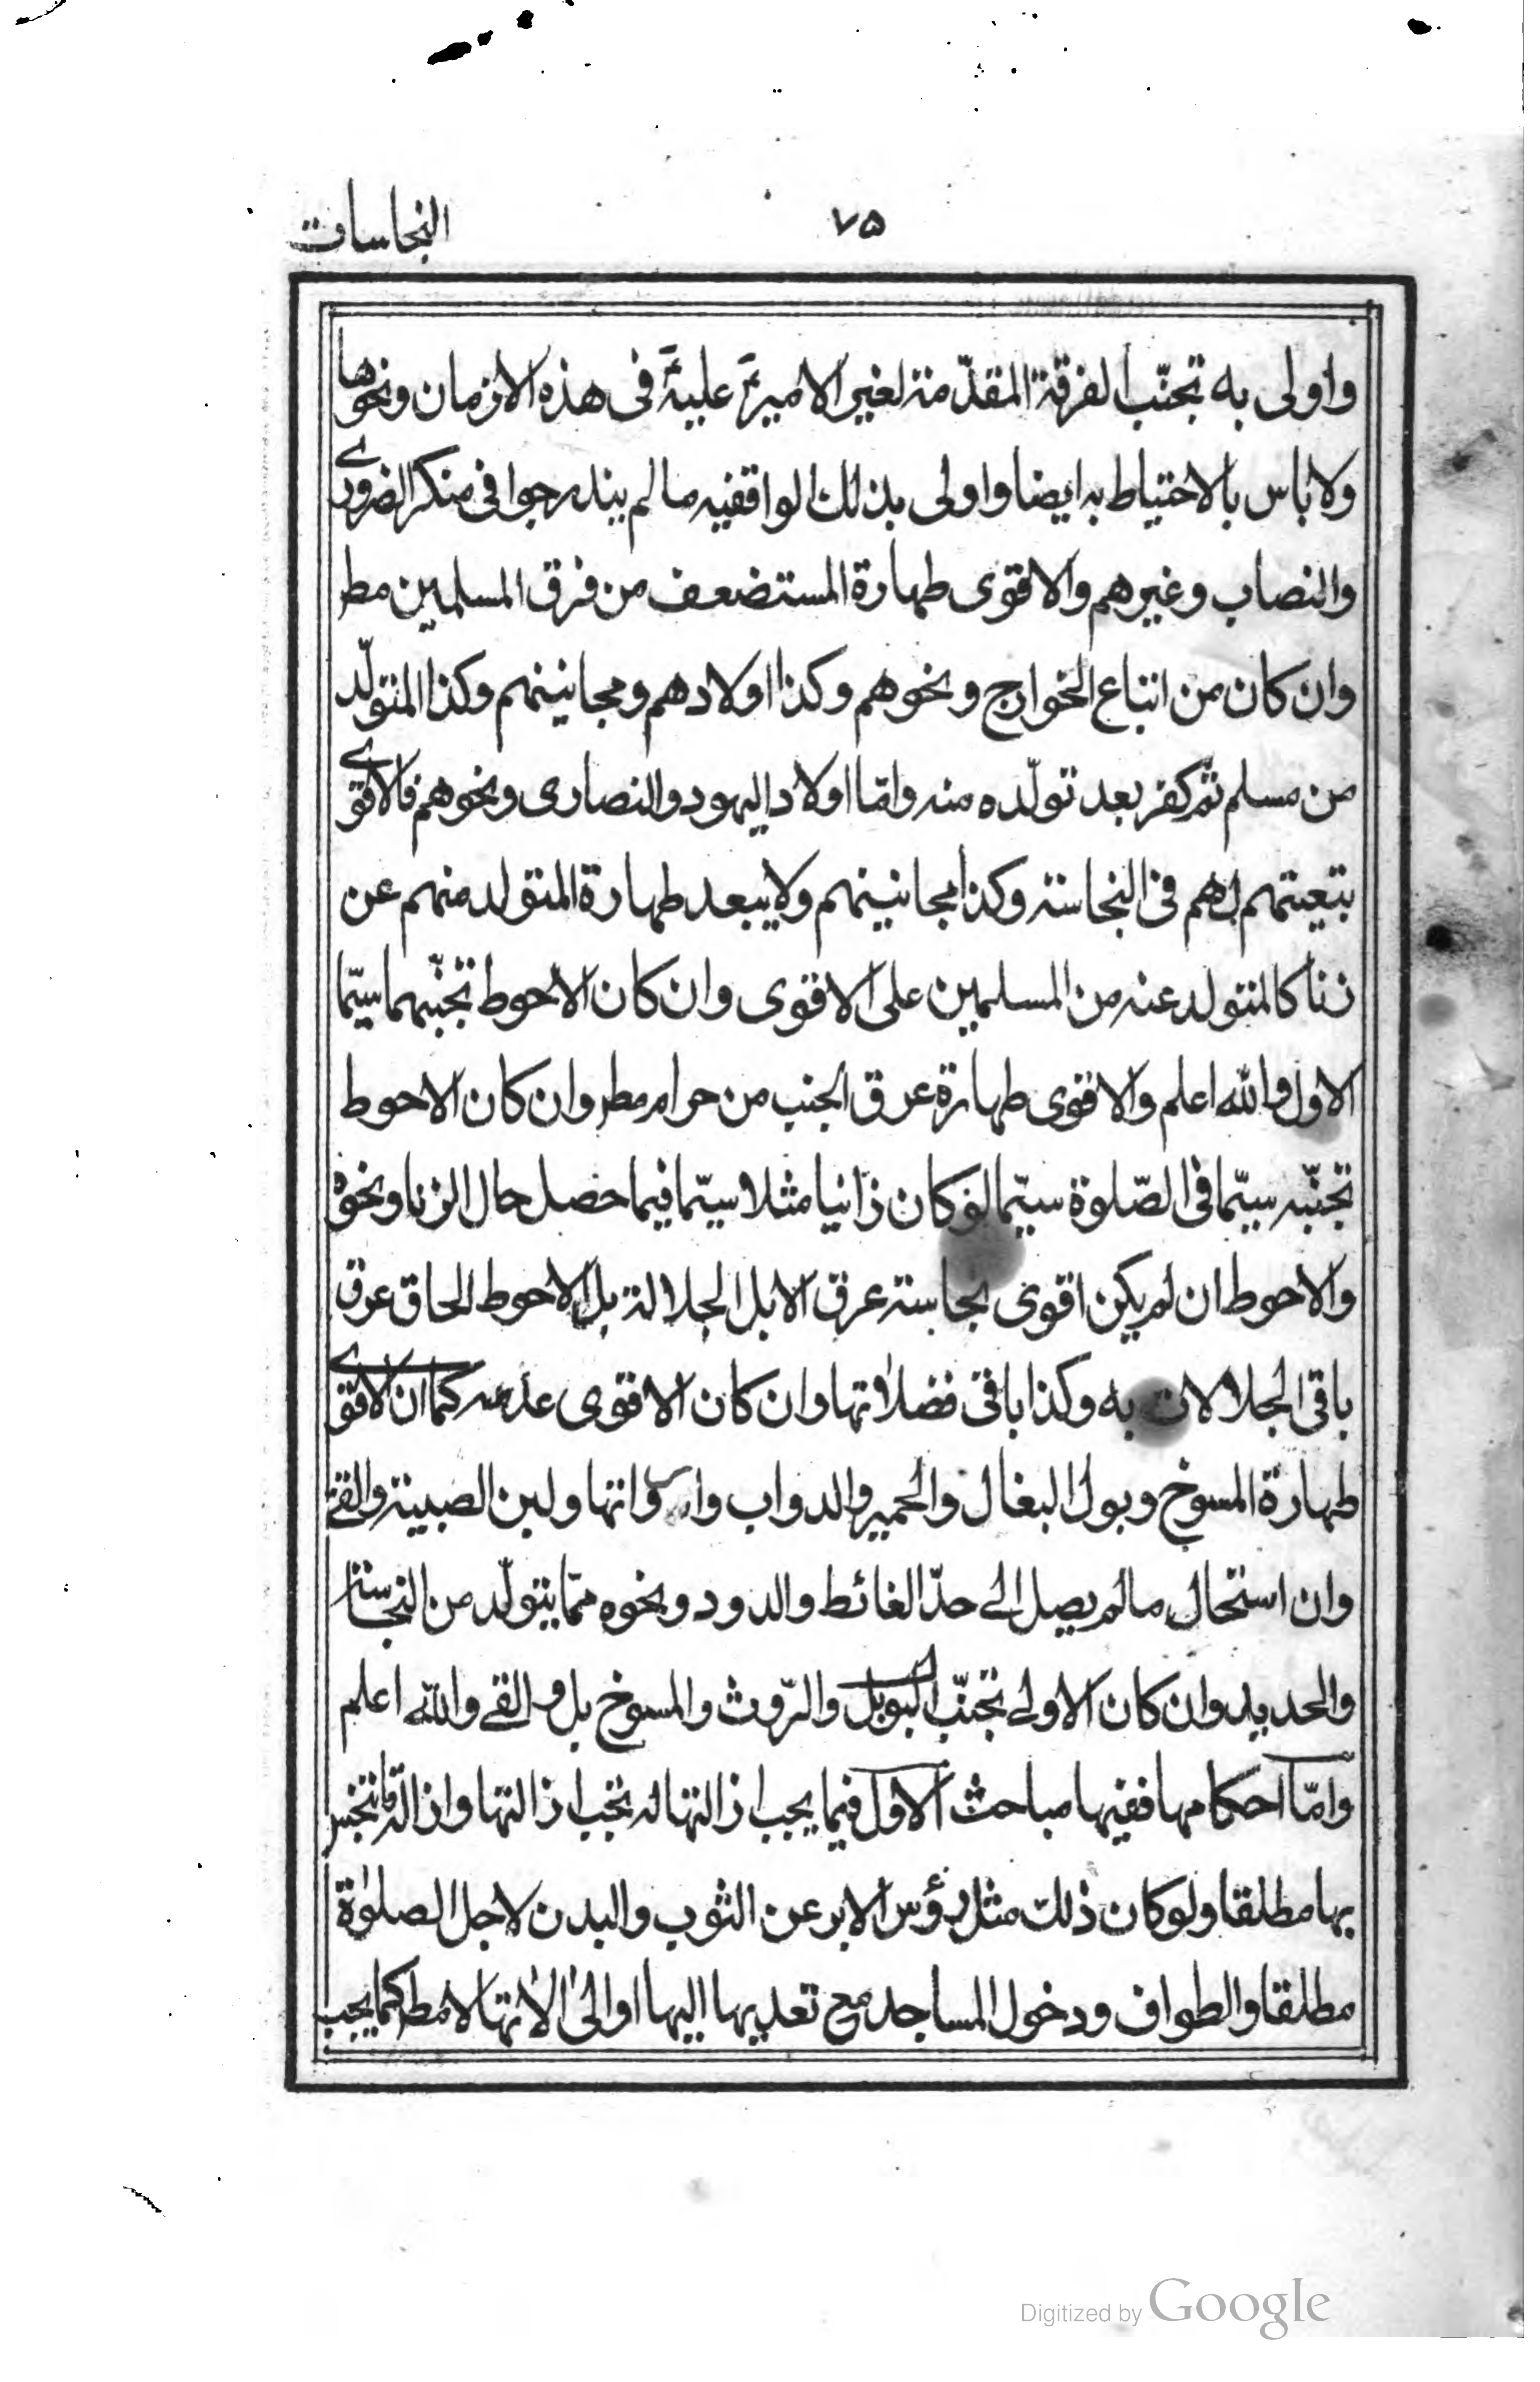 النجاسات
٧۵
واولى به تجنّب الفرقة المقدّمة لغير الامير؏ عليه؏ فى هذه الازمان ونحوها
ولا باس بالاحتياط به ايضا واولى بذلك الواقفيه ما لم يندرجوا فى منكر الضرورى
والنصاب وغيرهم والاقوى طهارة المستضعف من فرق المسلمين مط
وان كان من اتباع الخوارج ونحوهم وكذا اولادهم ومجانينهم وكذا المتولّد
من مسلم ثم كفر بعد تولّده منه وامّا اولاد اليهود والنصارى ونحوهم فالاقوى
بتعيتهم لهم فى النجاسة وكذا مجانينهم ولا يبعد طهارة المتولد منهم عن
زنا كالمتولد عنه من المسلمين على الاقوى وان كان الاحوط تجنّبهما سيّما
الاول والله اعلم والاقوى طهارة عرق الجنب من حرام مط وان كان الاحوط
تجنّبه سيّما فى الصّلوة سيّما لو كان زانيا مثلا سيّما فيما حصل حال الزنا ونحوه
والاحوط ان لم يكن اقوى نجاسة عرق الابل الجلالة بل الاحوط الحاق عرق
باقى الجلالات به وكذا باقى فضلاتها وان كان الاقوى عدمه كما ان الاقوى
طهارة المسوخ وبول البغال والحمير والدواب وارواثها ولبن الصبية والقئ
وان استحال ما لم يصل الى حدّ الغائط والدود ونحوه ممّا يتولّد من النجاسة
والحديد وان كان الاولى تجنّب البول والرّوث والمسوخ بل و القئ والله اعلم
وامّا احكامها ففيها مباحث الاول فيما يجب ازالتها له تجب ازالتها وازالة ما تنجس
بها مطلقا ولو كان ذلك مثل رؤس الابر عن الثوب والبدن لاجل الصلوة
مطلقا والطواف ودخول المساجد مع تعديها اليها او الى الاتها لا مط كما يجب
Digitized by Google